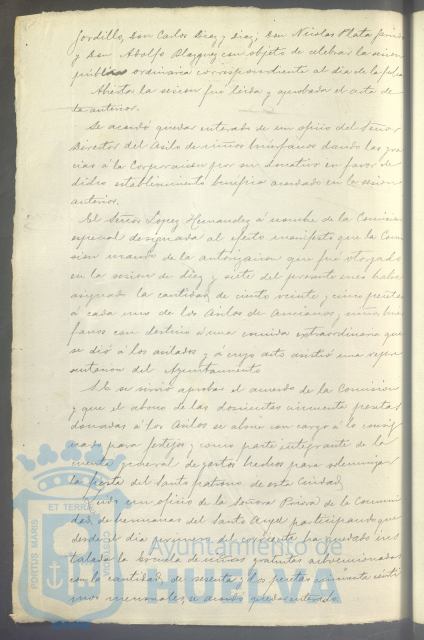 Jordillo, Don Carlos Diaz y Diaz; Don Nicolas Mata
y Don Adolfo Vazquez con objeto de celebrar la sesion
publica ordinaria correspondiente al dia de la fecha
Abierta la sesion fué leida y aprobada el acta de
la anterior.
Se acordó quedar enterado de un oficio del Señor
Director del Asilo de niños huérfanos dando las gra
cias á la Corporacion por un donativo en favor de
dicho establecimiento benéfico acordado en la sesion
anterior.
El Señor Lopez Hernandez á nombre de la Comision
especial designada al efecto manifestó que la Comi
sion usando de la autorizacion que fué otorgada
en la sesion de diez y siete del presente mes habia
asignado la cantidad de ciento veinte y cinco pesetas
á cada uno de los Asilos de Ancianos y niños huer
fanos con destino á una comida extraordinaria que
se dió á los asilados y á cuyo acto asistió una repre
sentacion del Ayuntamiento
S.E. se sirvió aprobar el acuerdo de la Comision
y que el abono de las doscientas cincuenta pesetas
donadas á los Asilos se abone con cargo á lo consig
nado para festejos y como parte integrante de la
cuenta general de gastos hechos para solemnizar
la fiesta del Santo patrono de esta Ciudad
un oficio de la Señora Priora de la Comuni
dad de hermanas del Santo Angel participando que
desde el dia primero del corriente ha quedado ins
talada la escuela de niños gratuitas subvencionadas
con la cantidad de sesenta y dos pesetas cincuenta cénti
mos mensuales, se acordó quedar enterado.
ET TERRAE
PORTUS MARIS
CUSTODIA
Ayuntamiento de
HUELVA